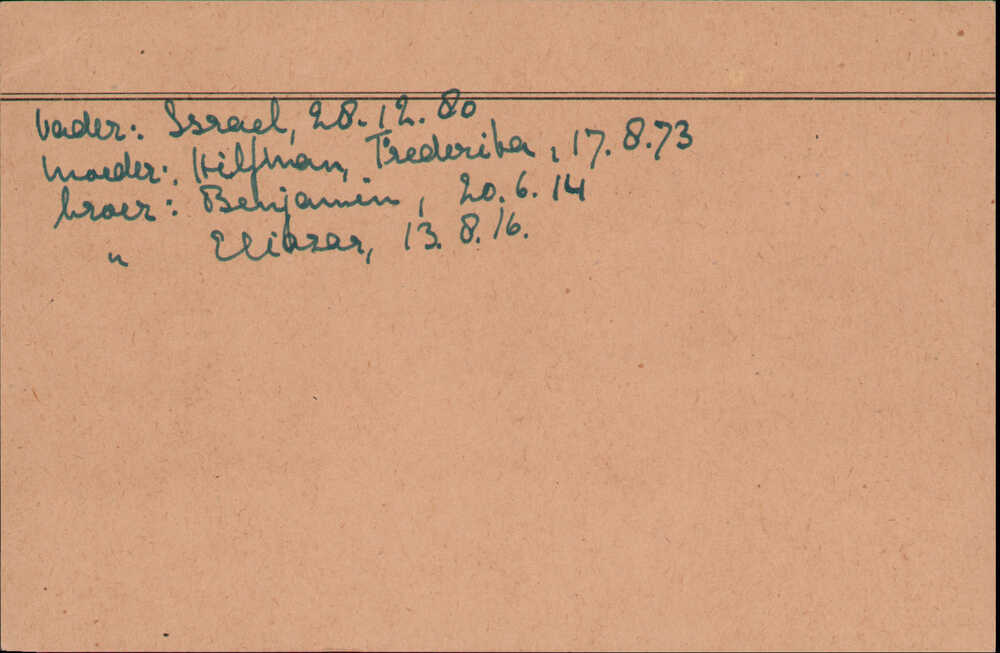 vader: Israel, 28.12.80
moeder: Hilfman, Frederika, 17.8.73
broer: Benjamin, 20.6.14
" Eliazar, 13.8.16.